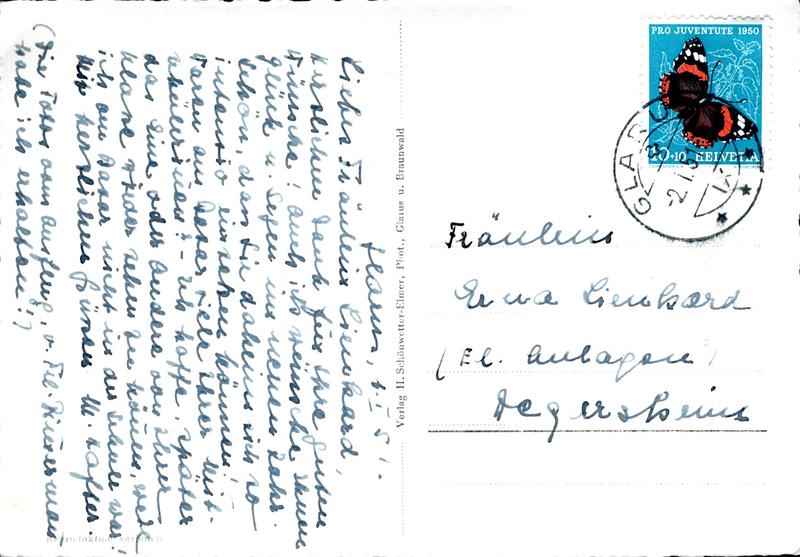 Glarus, 2. I. 51.
Liebes Fräulein Lienhard,
herzlichen Dank für Ihre guten
Wünsche! Auch ich wünsche Ihnen
Glück u. Segen im neuen Jahr.
Schön, dass Sie daheim sich so
intensiv einsetzen können!
Waren am Basar viele Ihrer Mit-
schülerinnen? – Ich hoffe, später
das Eine oder Andere von Ihrer
Klasse wieder sehen zu können, weil
ich am Basar nicht in der Schule war!
Mit herzlichen Grüssen M. Hafter.
(Die Fotos vom Ausflug v. Frl.
habe ich erhalten!)
Verlag H. Schönwetter-Elmer, Phot., Glarus u. Braunwald
PRO JUVENTUTE 1950
10+10 HELVETIA
GLARUS
2.I.51
Fräulein
Erna Lienhard
(El. Anlagen)
Degersheim